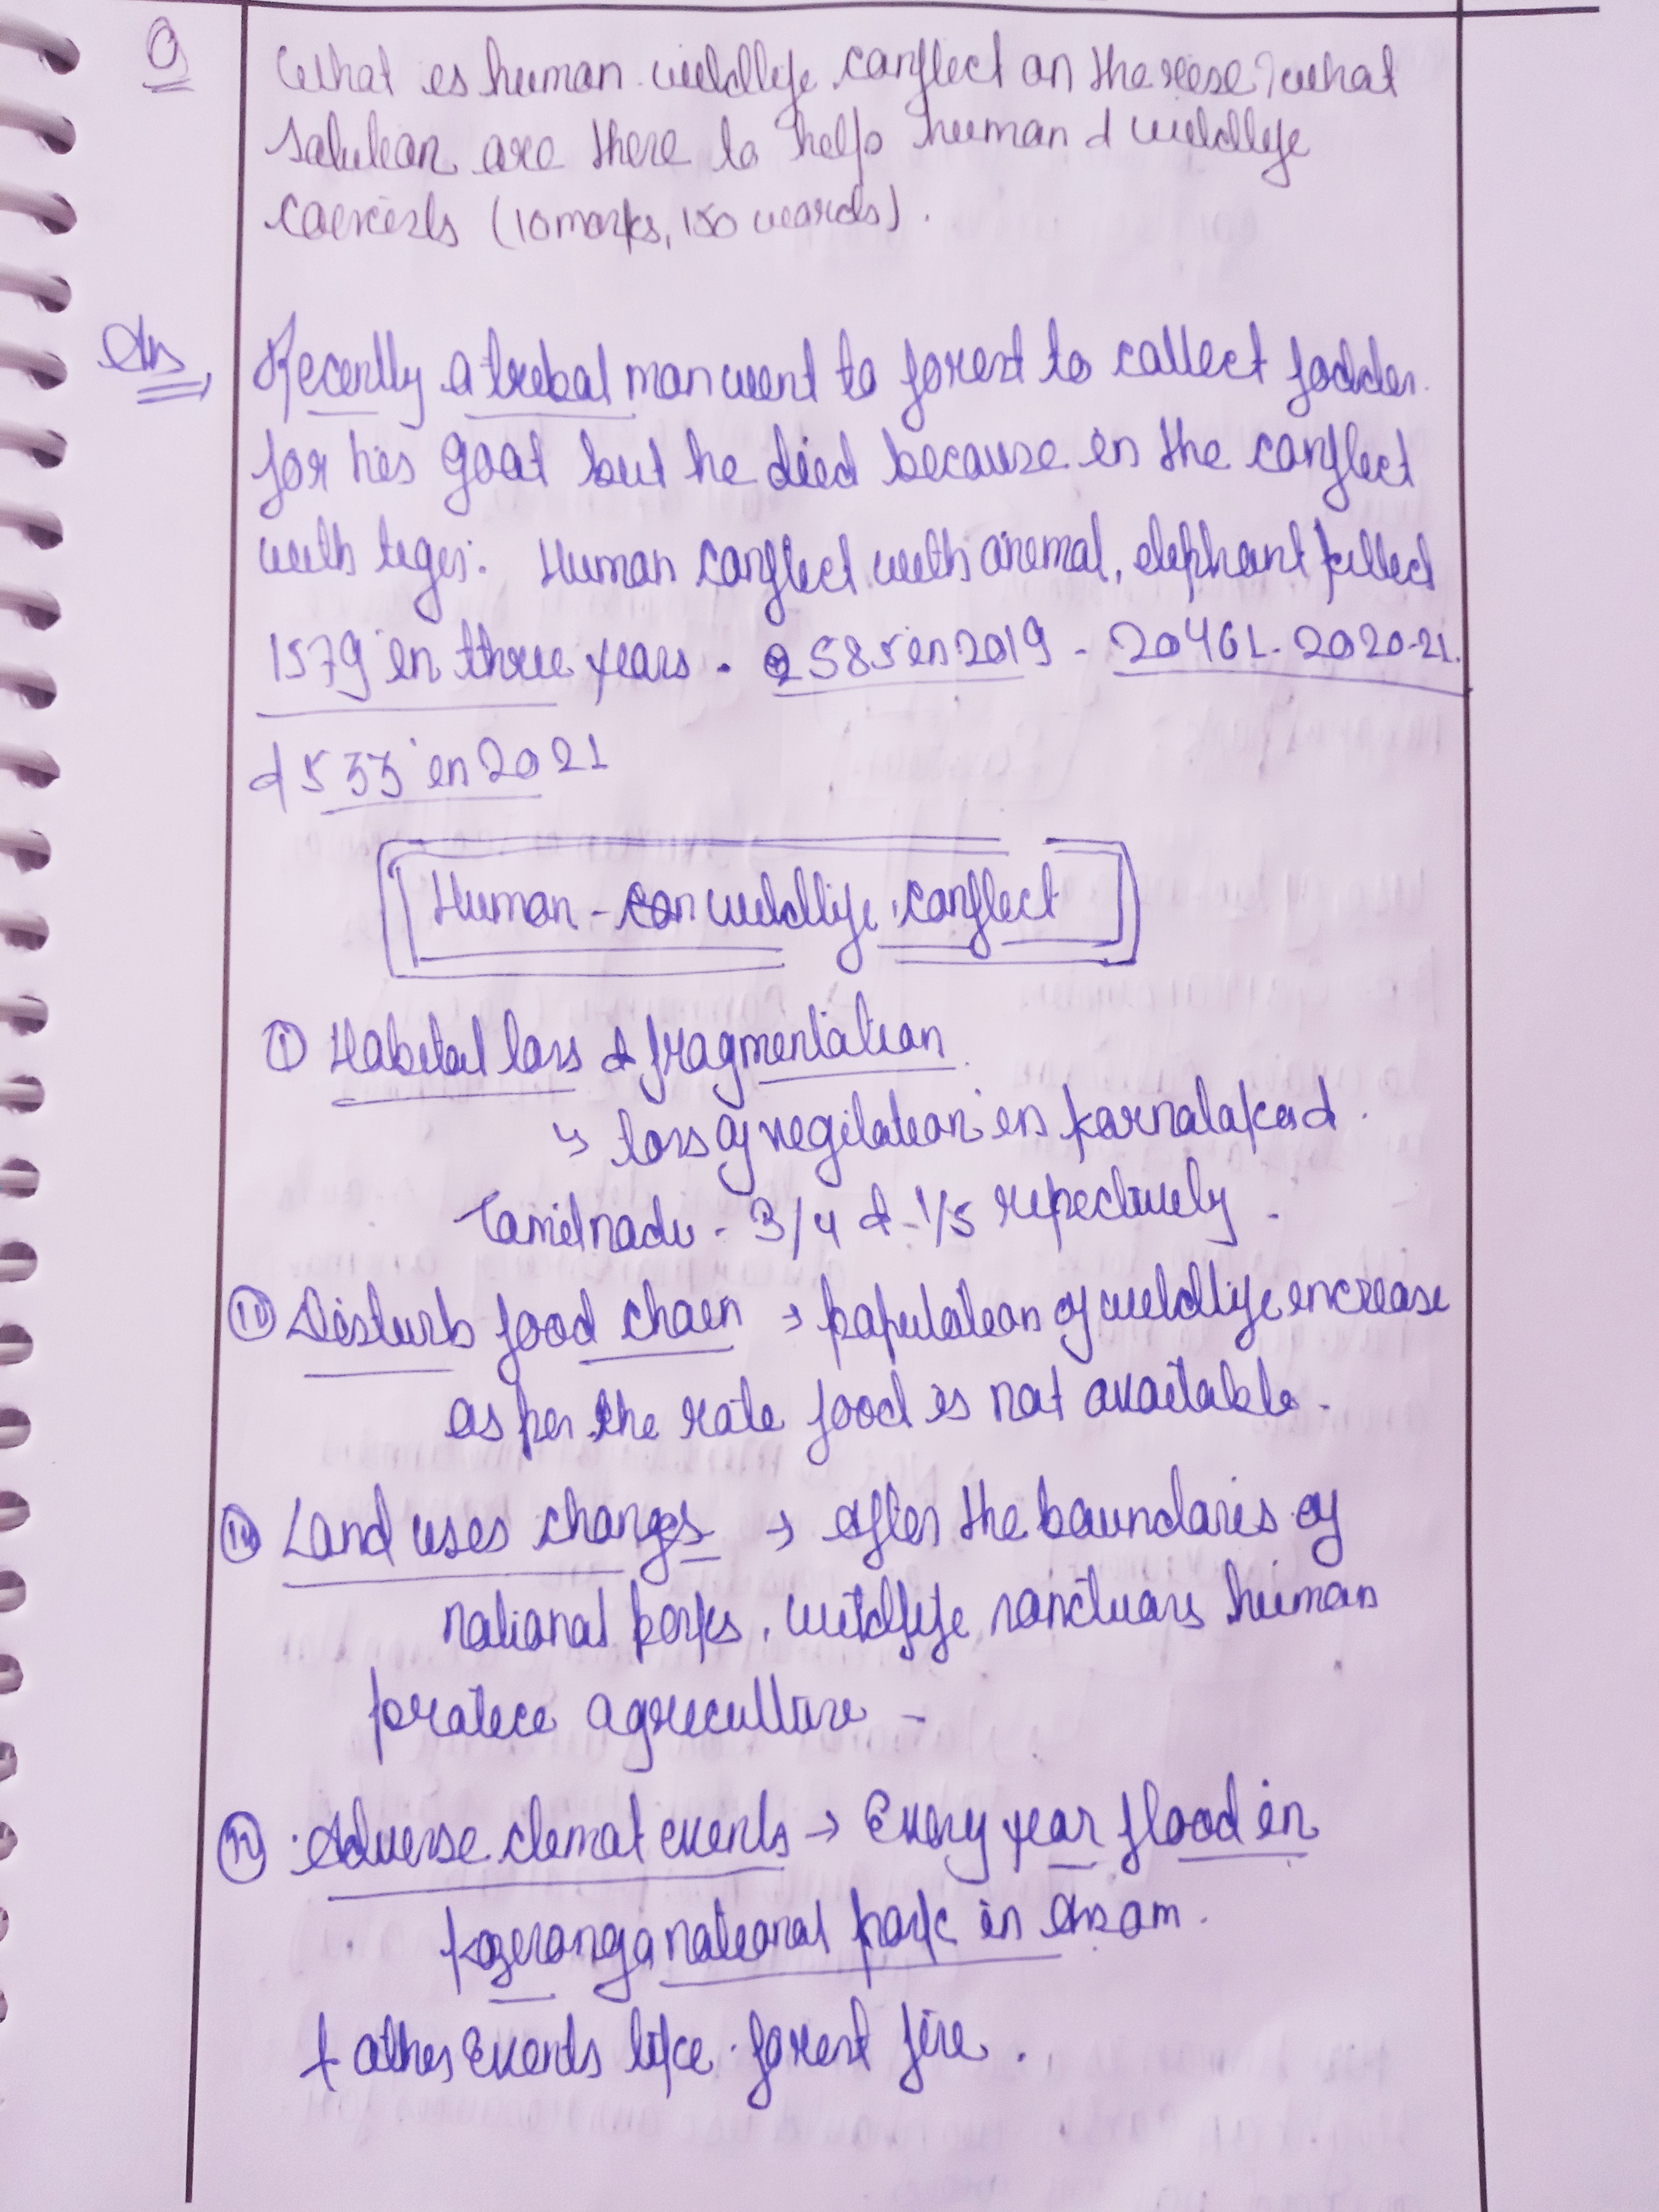 Q What is human wildlife conflict on the rise? what
solution are there to help human & wildlife
coexists (10 marks, 150 words).
Ans, Recently a tribal man went to forest to collect fodder
for his goat but he died because in the conflict
with tiger. Human conflict with animal, elephant killed
1579 in three years. 585 in 2019 - 20 461 - 2020-21.
& 533 in 2021
Human - wildlife conflict
(i) Habitat loss & fragmentation
↳ loss of vegitation in karnataka &
Tamilnadu - 3/4 & - 1/5 repectively.
(ii) Disturb food chain → population of wildlife increase
as per the rate food is not available.
Land uses changes → after the boundaris of
national parks, wildlife sanctuars human
pratice agriculture -
Adverse climat events → Every year flood in
kaziranga national park in Assam.
& other events like forest fire.